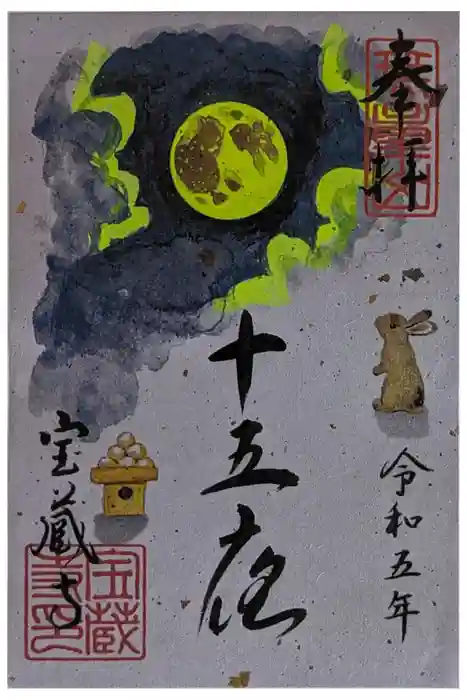 奉拝
令和五年
十五夜
宝蔵寺
宝蔵